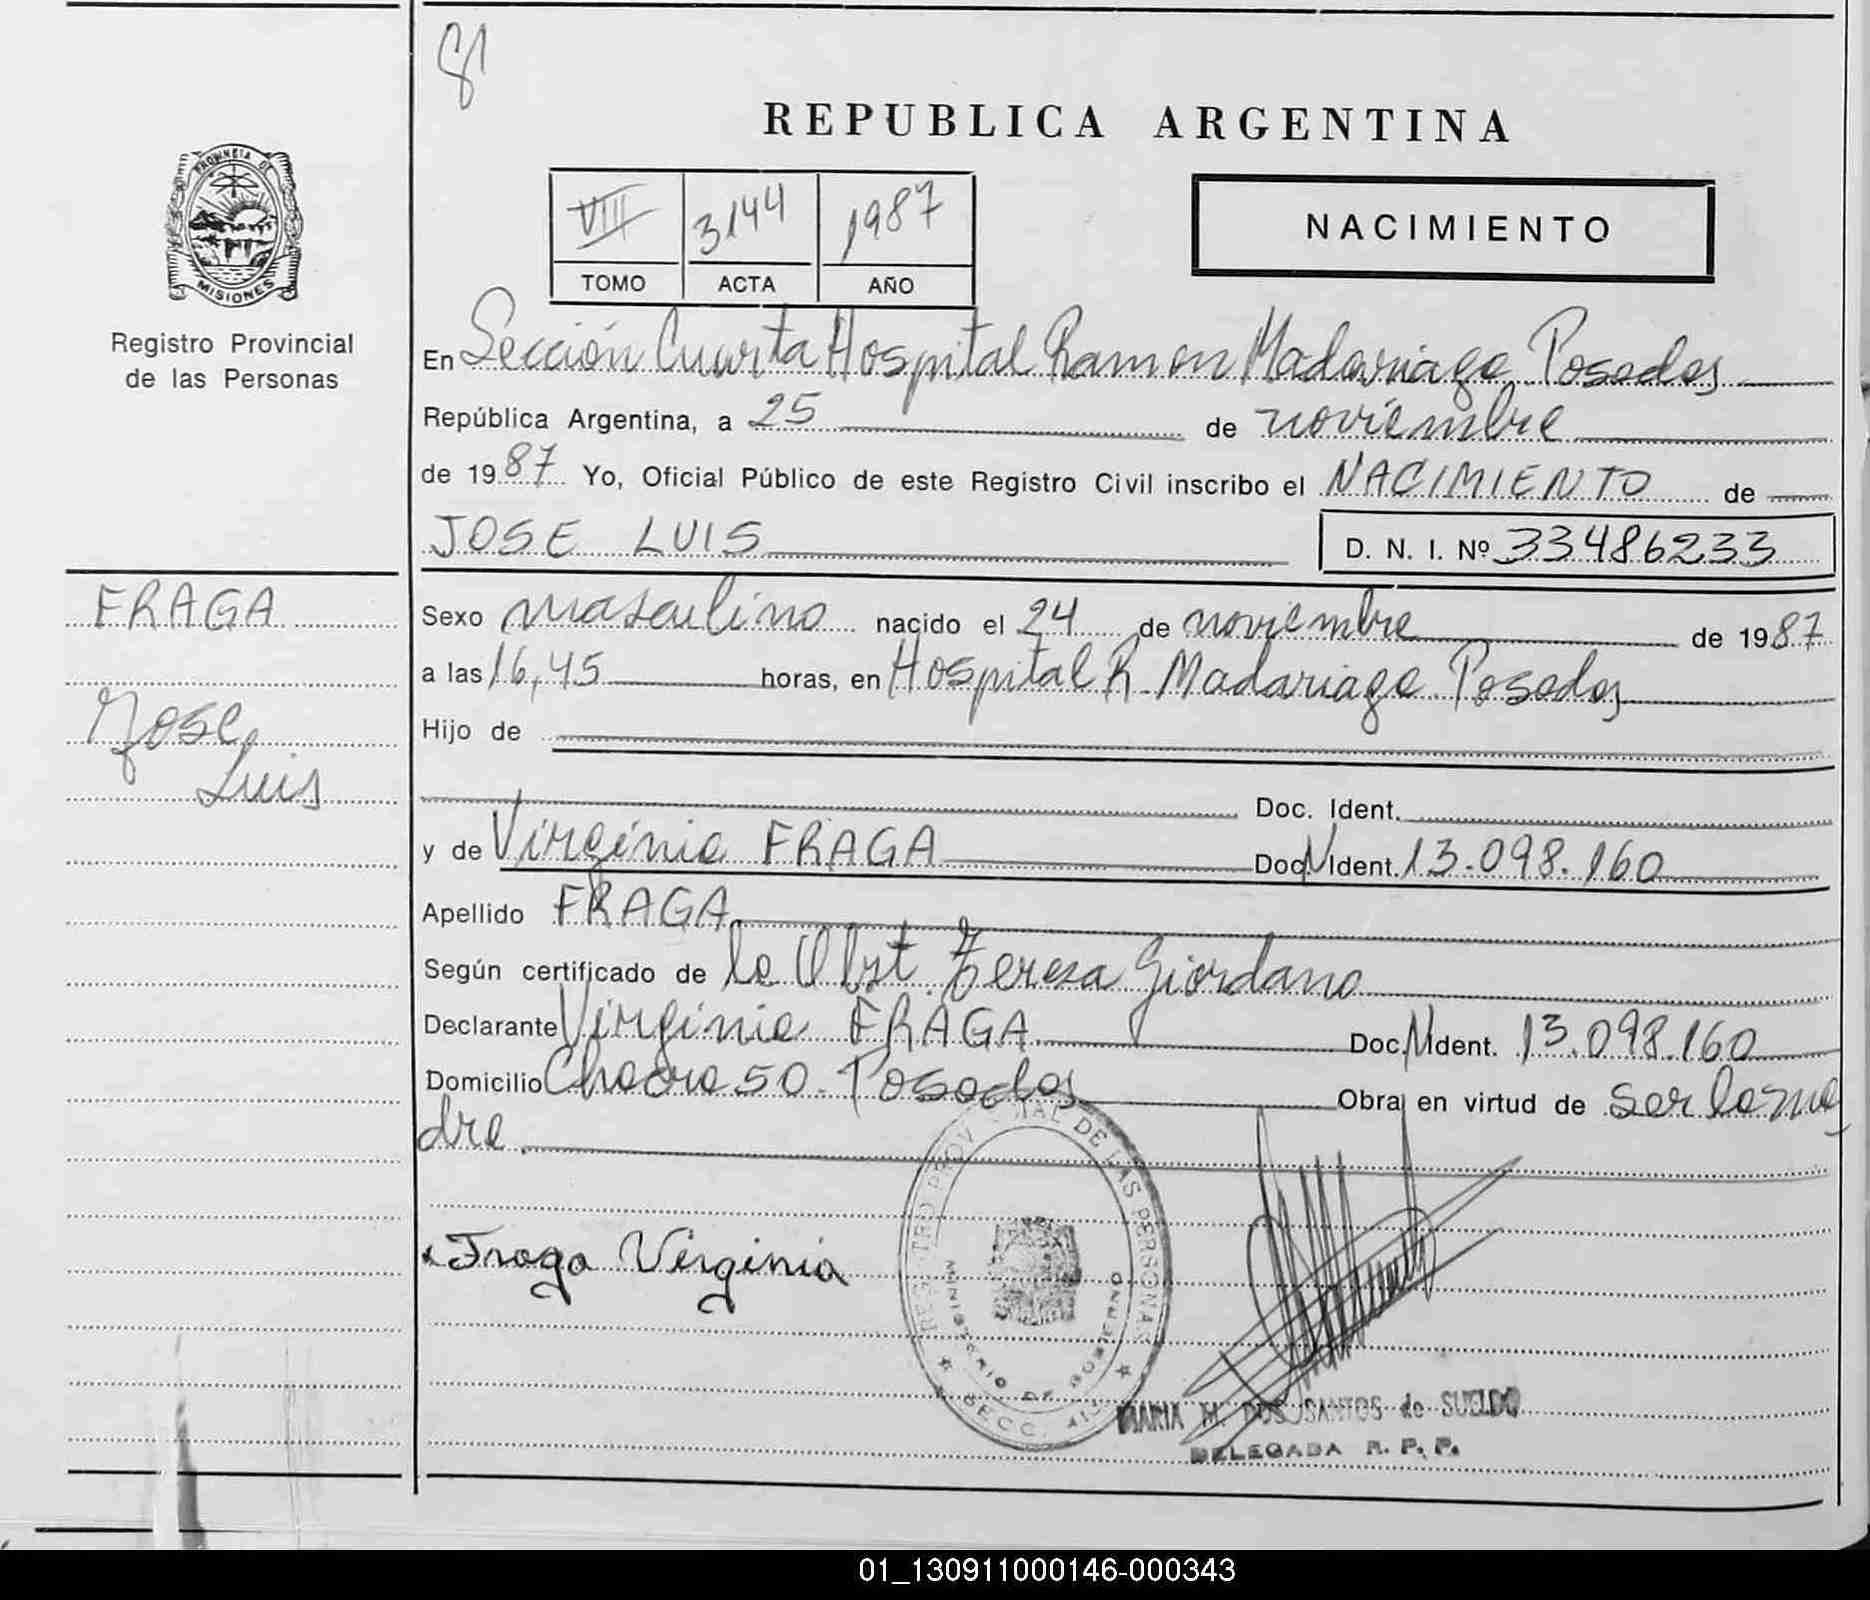 8
REPUBLICA ARGENTINA
PROVINCIA DE
MISIONES
Registro Provincial
de las Personas
VIII 3144 1987
TOMO ACTA AÑO
NACIMIENTO
En Sección Cuarta Hospital Ramon Madariaga Posadas
República Argentina, a 25 de noviembre
de 1987 Yo, Oficial Público de este Registro Civil inscribo el NACIMIENTO de
JOSE LUIS D. N. I. Nº 33486233
FRAGA
Jose
Luis
Sexo masculino nacido el 24 de noviembre de 1987
a las 16,45 horas, en Hospital R. Madariaga Posadas
Hijo de
Doc. Ident.
y de Virginia FRAGA Doc. Ident. 13.098.160
Apellido FRAGA
Según certificado de la Obst. Teresa Giordano
Declarante Virginia FRAGA Doc. Ident. 13.098.160
Domicilio Chacra 50. Posadas Obra en virtud de ser la ma
dre.
Fraga Virginia
REGISTRO PROVINCIAL DE LAS PERSONAS
MINISTERIO DE GOBIERNO
SECC. 4
MARIA M. DOS SANTOS de SUELDO
DELEGADA R. P. P.
01_130911000146-000343